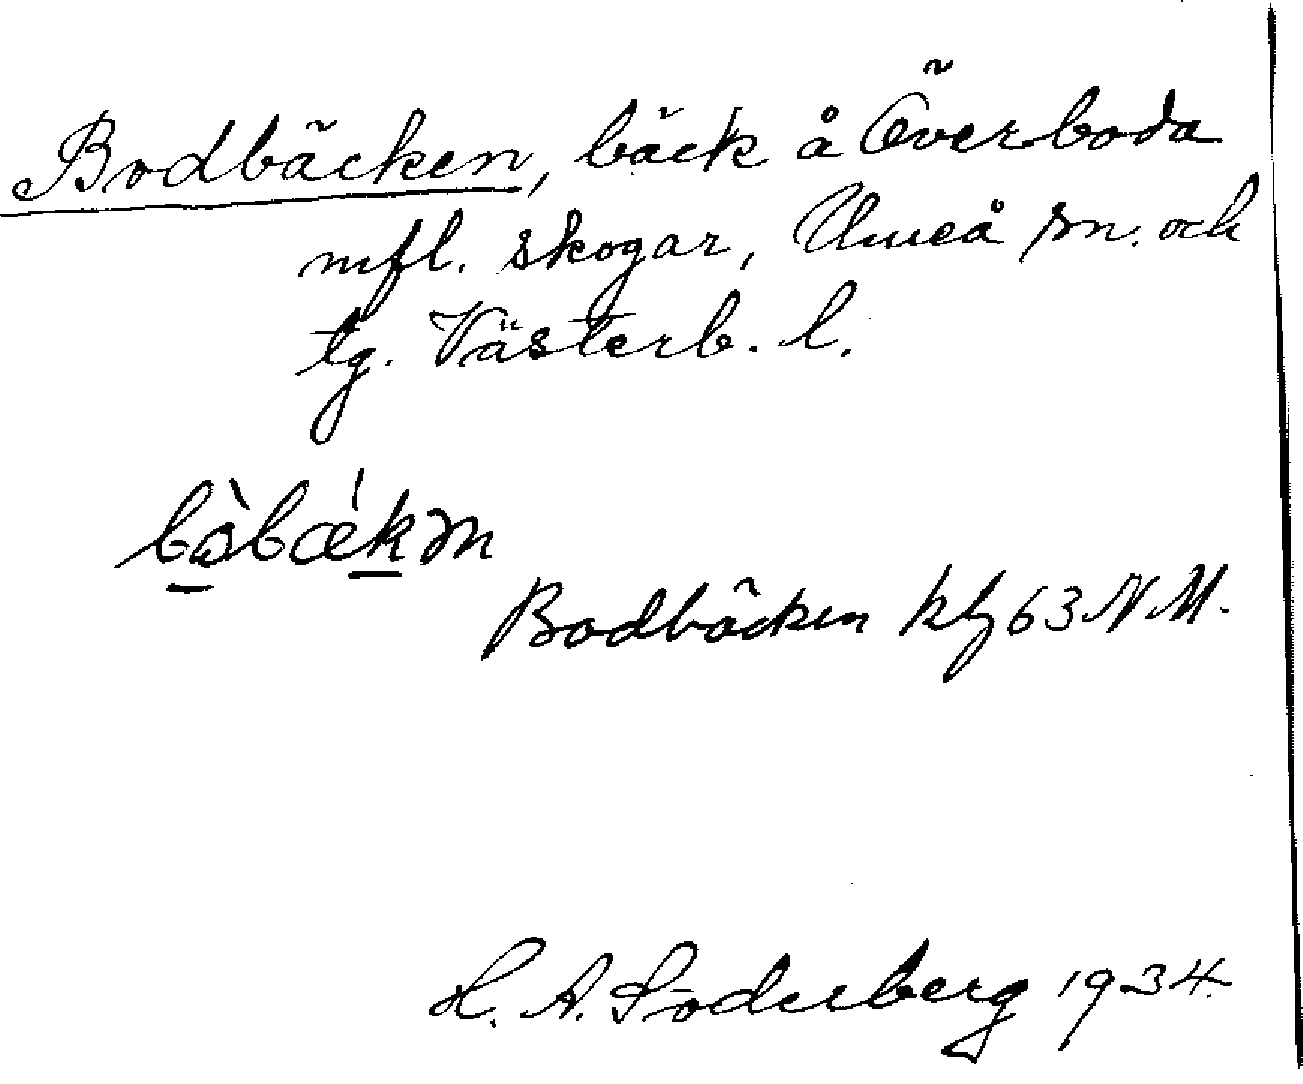 Bodbäcken, bäck å Överboda
mfl. skogar, Umeå sn. och
tg. Västerb. l.
bə̀bǽkən
Bodbäcken kbl 63 N M.
H. A. Söderberg 1934.